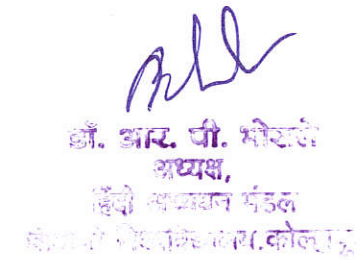 डॉ. आर. पी. भोसले
अध्यक्ष,
हिंदी अध्ययन मंडल
शिवाजी विश्वविद्यालय, कोल्हापूर